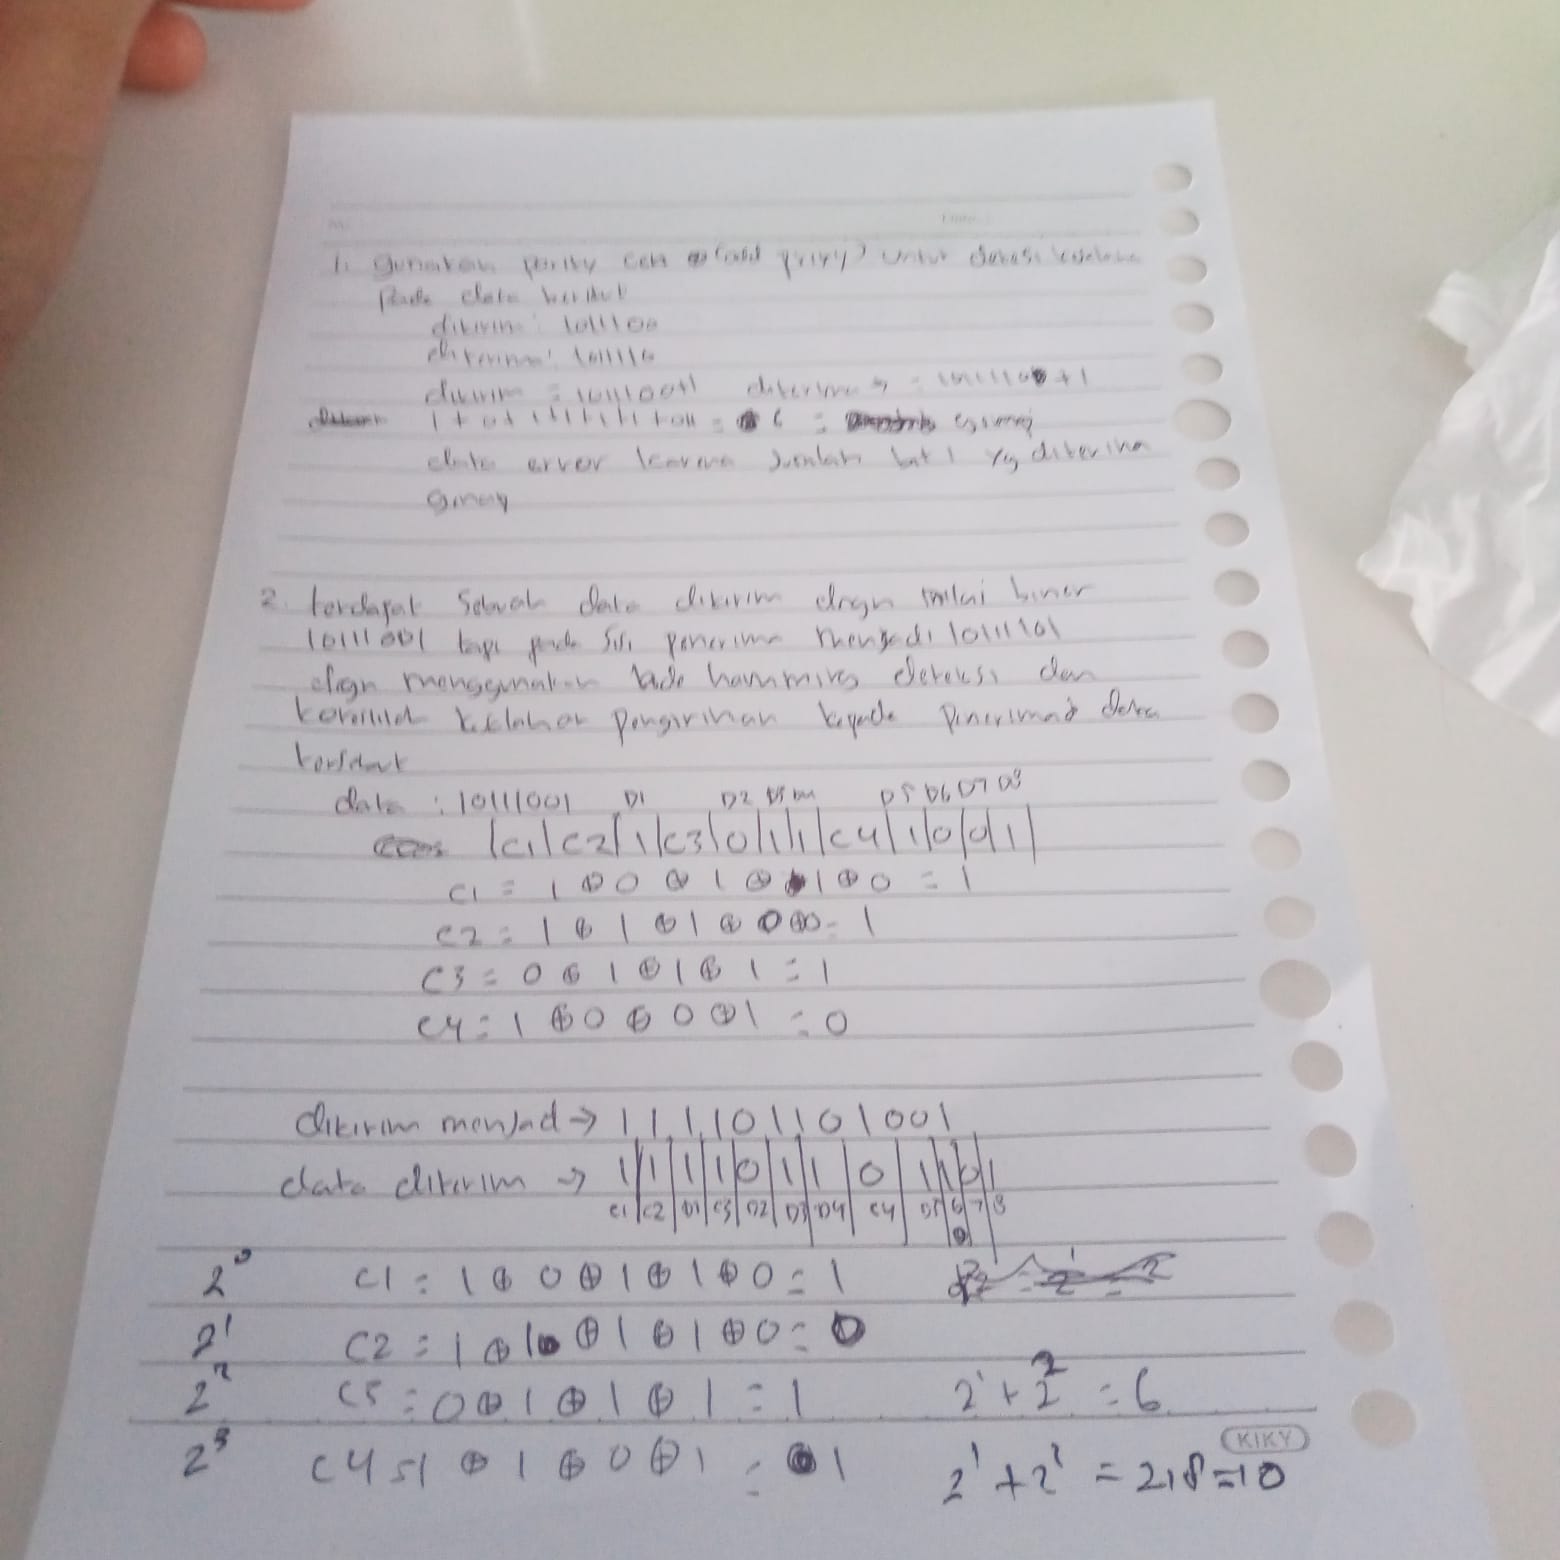 1. gunakan parity cek (odd parity) untuk deteksi
Pada data berikut
dikirim : 1011100
diterima : 1011110
dikirim = 1011100+1 diterima → =
= 6 =
data error karena Jumlah bit 1 yg diterima
genap
2. terdapat Sebuah data dikirim dngn nilai biner
10111001 tapi pada sisi penerima menjadi 10111101
dngn menggunakan kode hamming deteksi dan
pengiriman kepada penerima data
tersebut
data : 10111001 D1 D2 D3 D4 D5 D6 D7 D8
|C1|C2|1|C3|0|1|1|C4|1|0|0|1|
C1 = 1 ⊕ 0 ⊕ 1 ⊕ 1 ⊕ 0 = 1
C2 = 1 ⊕ 1 ⊕ 1 ⊕ 0 ⊕ 0 = 1
C3 = 0 ⊕ 1 ⊕ 1 ⊕ 1 = 1
C4 = 1 ⊕ 0 ⊕ 0 ⊕ 1 = 0
dikirim menjad → 111101101001
data dikirim → 1|1|1|1|0|1|1|0|1|1|0|1
C1|C2|D1|C3|D2|D3|D4|C4|D5|6|7|8
2⁰ C1 = 1 ⊕ 0 ⊕ 1 ⊕ 1 ⊕ 0 = 1
2¹ C2 = 1 ⊕ 1 ⊕ 1 ⊕ 1 ⊕ 0 = 0
2² C3 = 0 ⊕ 1 ⊕ 1 ⊕ 1 = 1 2¹ + 2² = 6
2³ C4 = 1 ⊕ 1 ⊕ 0 ⊕ 1 = 1 2¹ + 2¹ = 2+8 = 10
KIKY